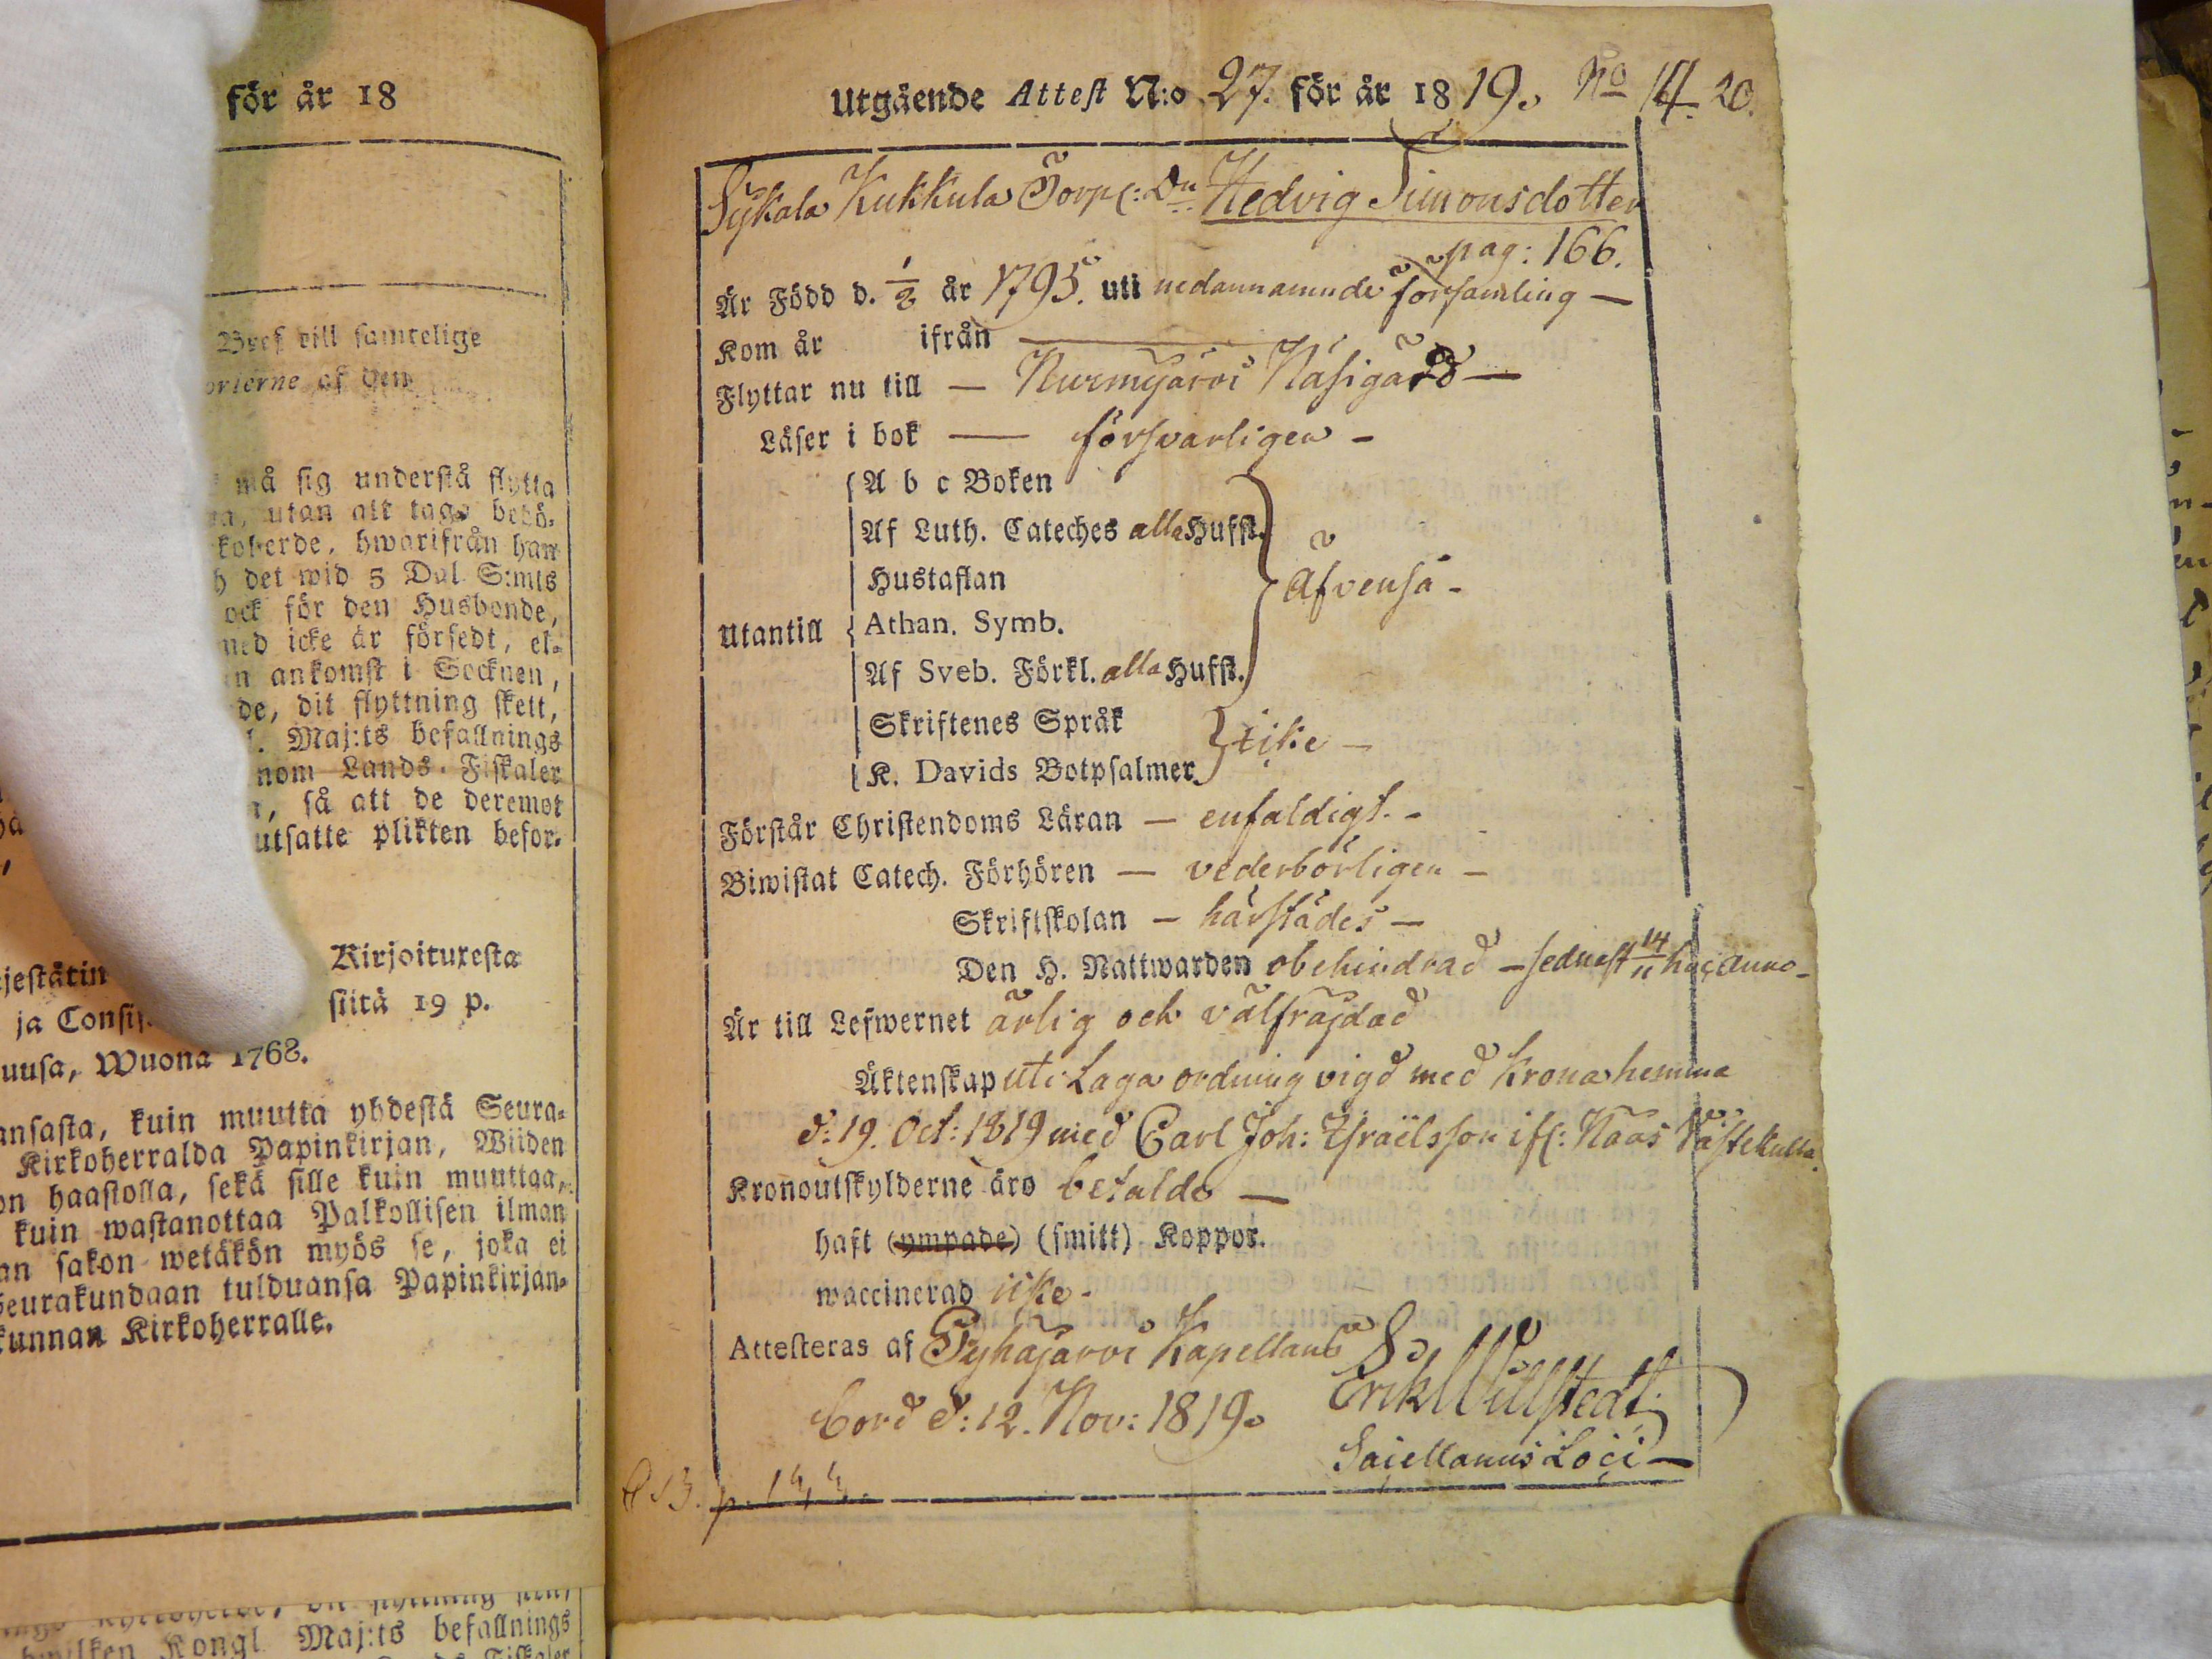 för år 18
Bref till samtelige
orierne af den
må sig understå flytta
utan att taga behö-
koherde, hwarifrån han
det wid 5 Dal S:mts
ock för den Husbonde,
med icke är försedt, el-
ankomst i Socknen,
de, dit flyttning skett,
Maj:ts befallnings
nom Lands-Fiskaler
, så att de deremot
utsatte plikten befor-
jestätin Kirjoituxesta
ja Consis siitä 19 p.
uusa, Wuona 1768.
ansasta, kuin muutta yhdestä Seura-
Kirkoherralda Papinkirjan, Wiiden
on haastolla, sekä sille kuin muuttaa,
kuin wastanottaa Palkollisen ilman
an sakon wetäkön myös se, joka ei
Seurakundaan tulduansa Papinkirjan-
kunnan Kirkoherralle.
hwilken Kongl. Maj:ts befallnings
Utgående Attest N:o 27. för år 1819. No 14. 20.
Sykala Kukkula Torp: Dr. Hedvig Simonsdotter
pag: 166.
Är Född d. 1/2 år 1795. uti nedannamnde församling —
Kom år ifrån —
Flyttar nu till — Nurmijärvi Näsigård —
Läser i bok — försvarligen –
A b c Boken
Af Luth. Cateches alla Hufst.
Hustaflan
Äfvensä -
Utantill Athan. Symb.
Af Sveb. Förkl. alla Hufst.
Skriftenes Språk
icke —
K. Davids Botpsalmer
Förstår Christendoms Läran — enfaldigt. -
Biwistat Catech. Förhören — vederbörligen -
Skriftskolan — härstädes —
Den H. Nattwarden obehindrad — sednast 14/11 huc anno -
Är till Lefwernet ärlig och välfräjdad
Äktenskap uti Laga ordning vigd med Krona hemma
d: 19. Oct: 1819 med Carl Joh: Israëlsson ifr: Näas Västekulla.
Kronoutskylderne äro betalde —
haft (ympade) (smitt) Koppor.
waccinerad icke -
Attesteras af Pyhäjärvi Kapellans
bord d: 12. Nov: 1819. Erik Willstedt
Sacellanus Loci —